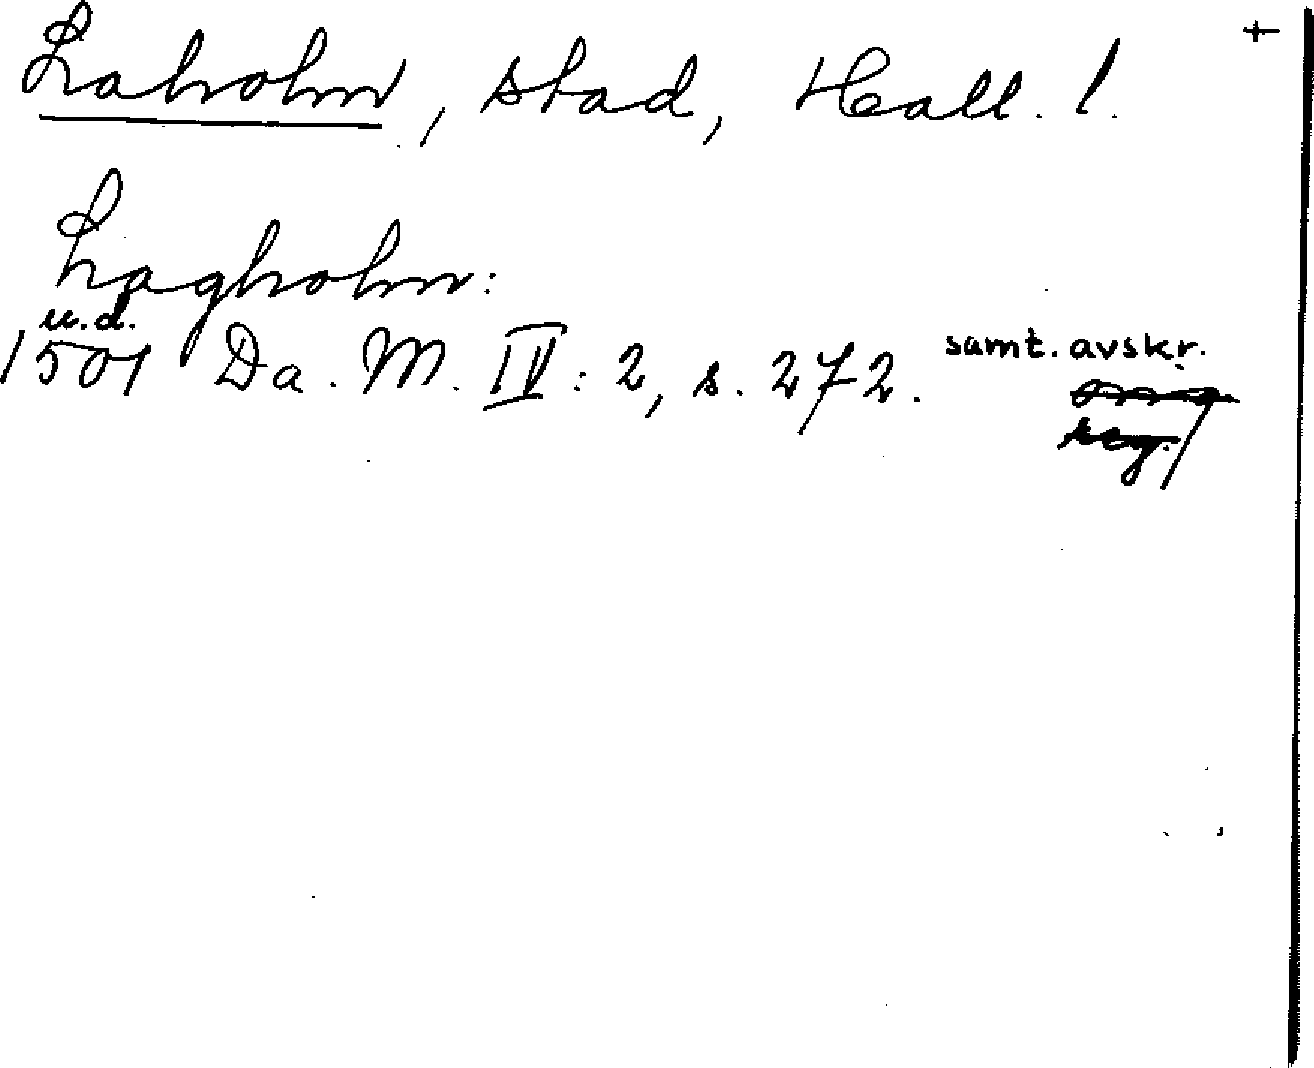 Laholm, stad, Hall. l. +
Lagholm:
u.d.
1501 Da. M. IV: 2, s. 272. samt. avskr.
reg.